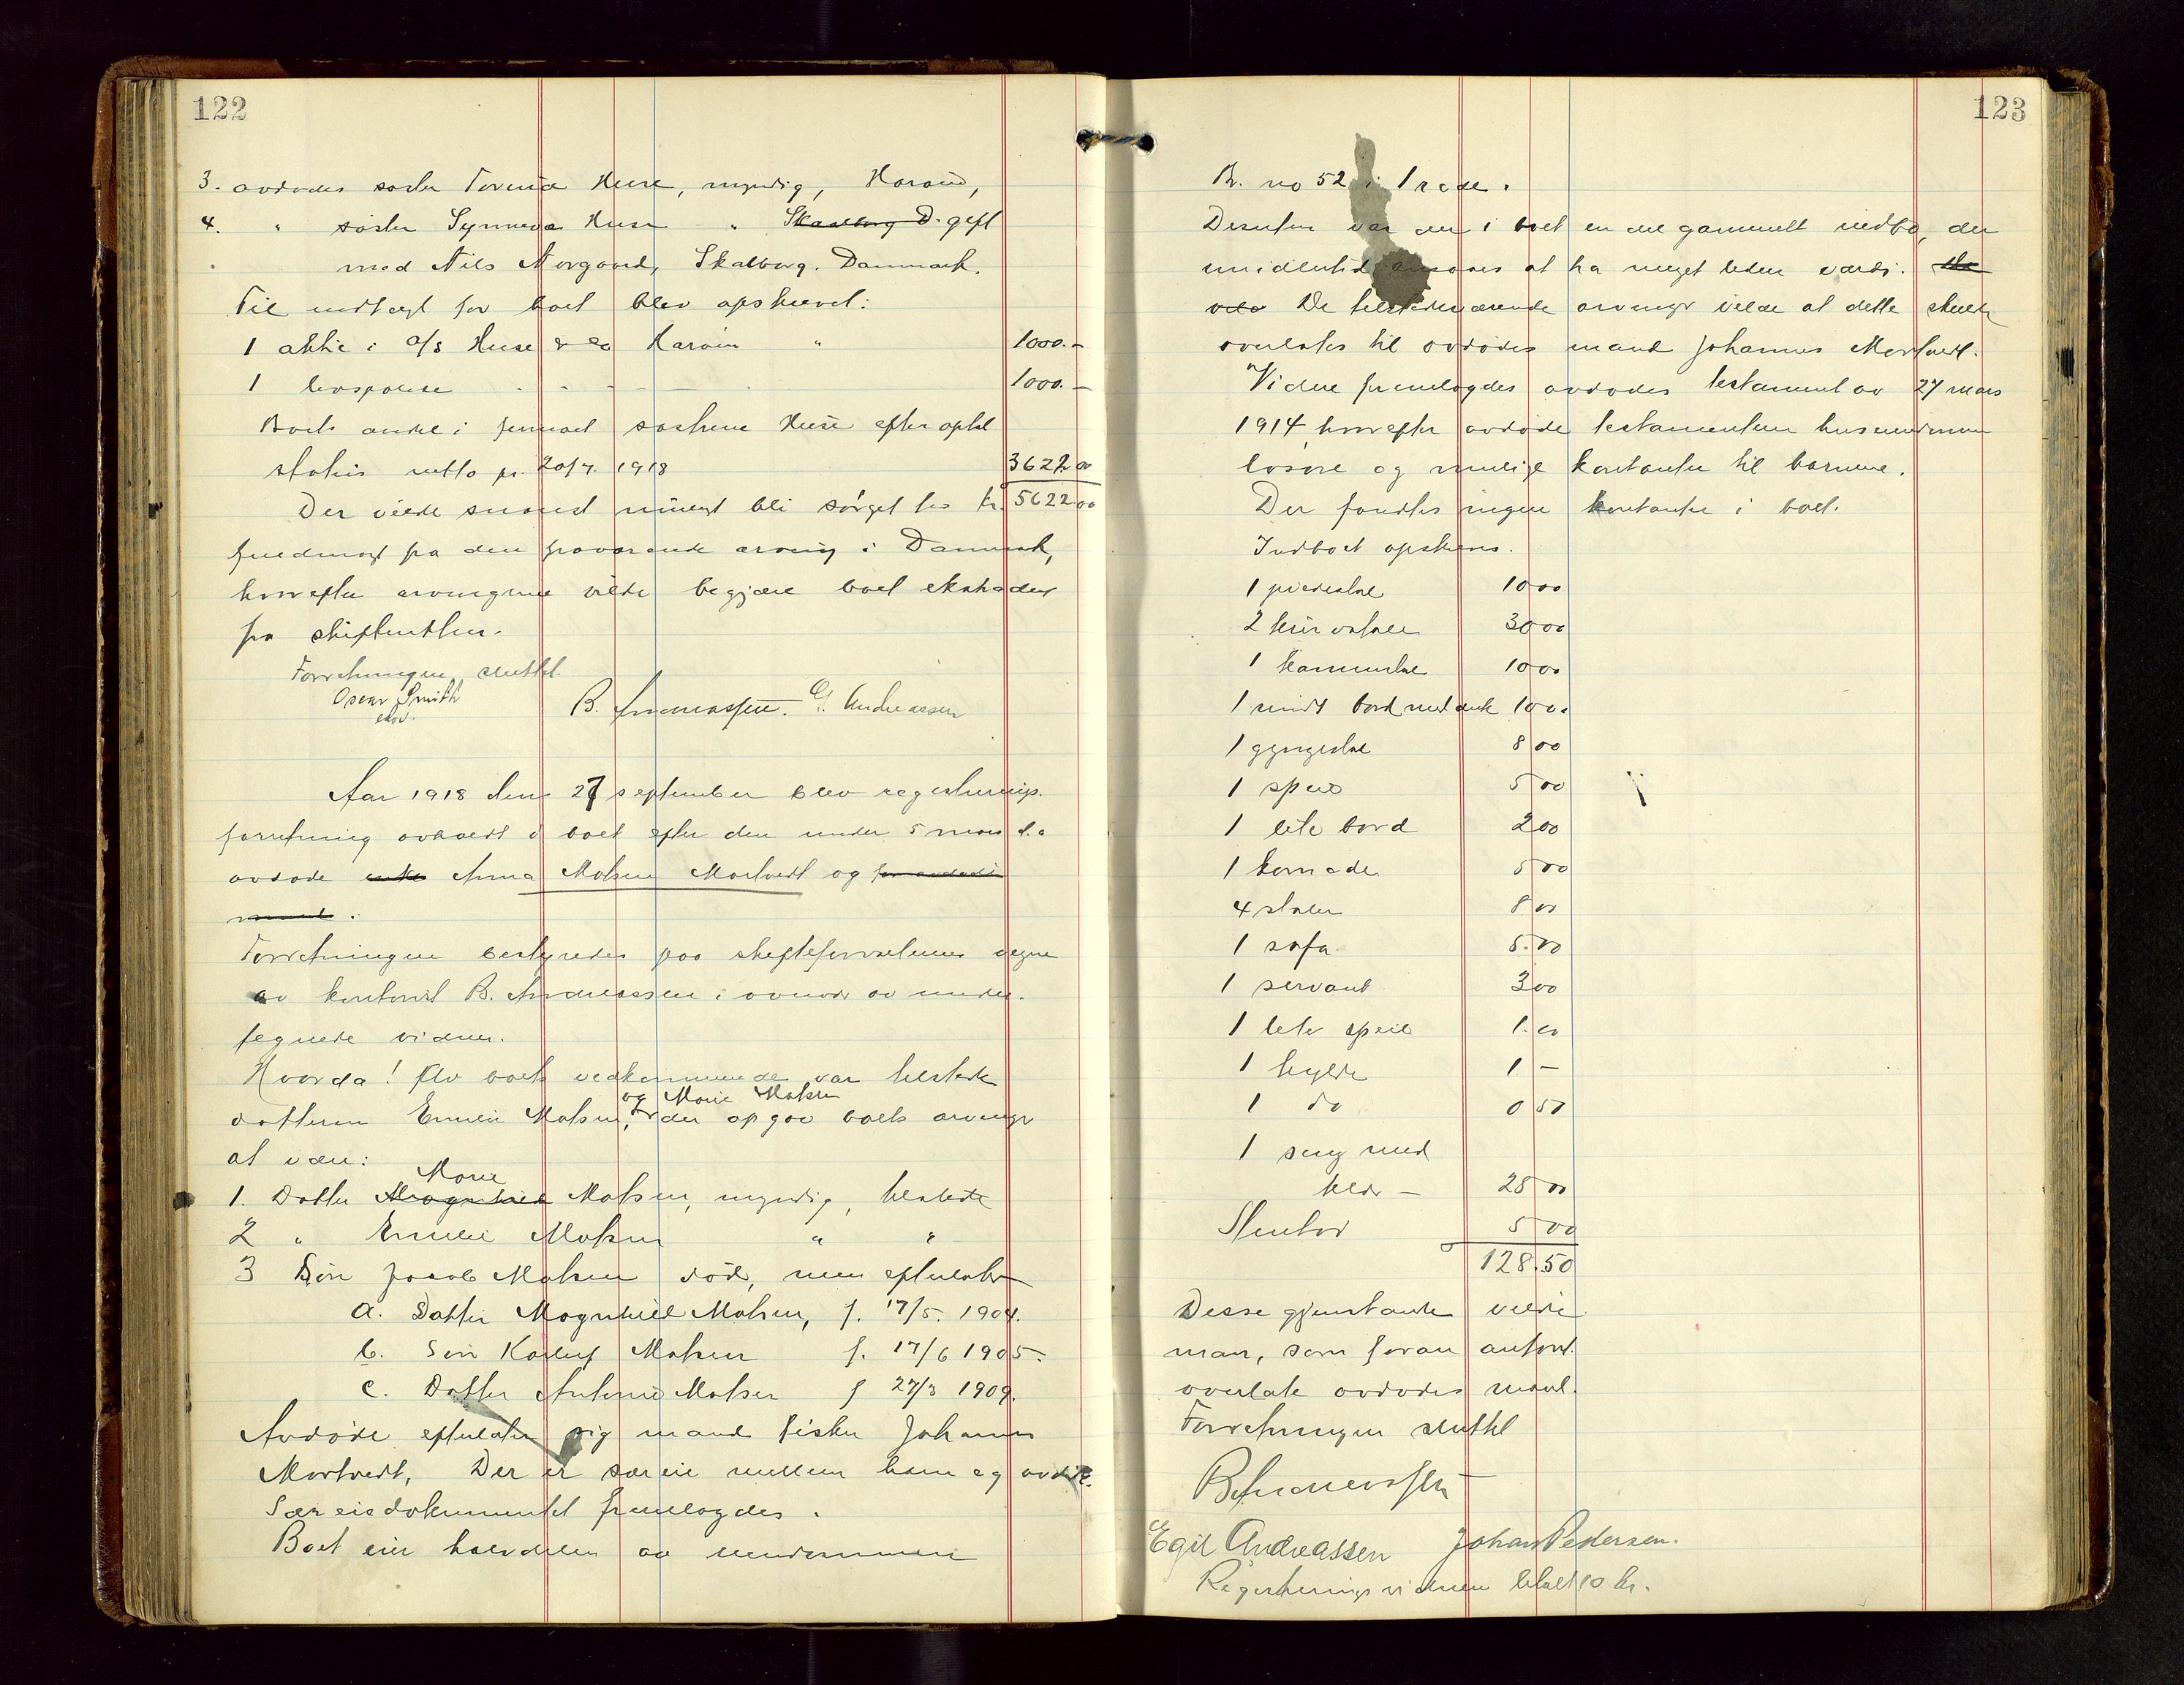 122
3. avdødes søster Severine Huse, myndig, Harøin,
4. " søster Synneva Huse " Skaalborg D. gift
med Nils Nørgaard, Skalborg. Danmark.
Til indtægt for boet blev opskrevet:
1 aktie i A/S Huse & Co Harøin " 1000.-
1 livspolise 1000.-
Boets andel i firmaet søstrene Huse efter opstil
status netto pr. 20/7. 1918 3622 00
Der vilde snarest muligst bli sørget for kr. 5622 00
fuldmagt fra den fraværende arving i Danmark,
hvorefter arvingerne vilde begjære boet ekstraderet
fra skifteretten.
Forretningen sluttet.
Oscar Smith B. Andreassen. E. Andreassen
Aar 1918 den 27 september blev registrerings-
forretning avholdt i boet efter den under 5 mars d.a
avdøde enke Anna Matsen Mortvedt og
mand.
Forretningen bestyredes paa skifteforvalterens vegne
av kontorist B. Andreassen i overvær av under-
tegnede vidner.
Hvorda! Av boets vedkommende var tilstede
og Marie Matsen
datteren Emilie Matsen, der opgav boets arvinger
at være:
Marie
1. Datter Magnhild Matsen, myndig, tilstede
2 " Emilie Matsen " "
3 Søn Jacob Matsen død, men efterlater
a. Datter Magnhild Matsen, f. 17/5. 1904.
b. Søn Karluf Matsen f. 17/6 1905.
c. Datter Antonie Matsen f 27/3 1909.
Avdøde efterlater sig mand fisker Johannes
Mortvedt, Der er særeie mellem ham og avdøde.
Særeiedokumentet fremlagdes.
Boet eier halvdelen av eiendommen
123
Br. no 52 i
Desuten var der i boet en del gammelt indbo, der
imidlertid ansaaes at ha meget liten værdi. De
vilde De tilstedeværende arvinger vilde at dette skulde
overlates til avdødes mand Johannes Mortvedt.
Videre fremlagdes avdødes testament av 27 mars
1914, hvorefter avdøde testamenterer hus eiendommen
løsøre og mulige kontanter til barnene.
Der fandtes ingen kontanter i boet.
Indboet opskreves.
1 piedestal 10 00
2 kurvstole 30 00
1 10 00
1 rundt bord med duk 10 0.
1 gyngestol 8 00
1 speil 5 00
1 lite bord 2 00
1 komode 5 00
4 stoler 8 00
1 sofa 5.00
1 servant 3 00
1 lite speil 1.00
1 hylde 1 -
1 do 0 50
1 seng med
klær - 25 00
Stuebord 5 00
128.50
Disse gjenstande vilde
man, som foran anført.
overlate avdødes mand.
Forretningen sluttet
B Andreassen
Egil Andreassen Johan Pedersen.
Registreringsvidnene betalt 10 kr.